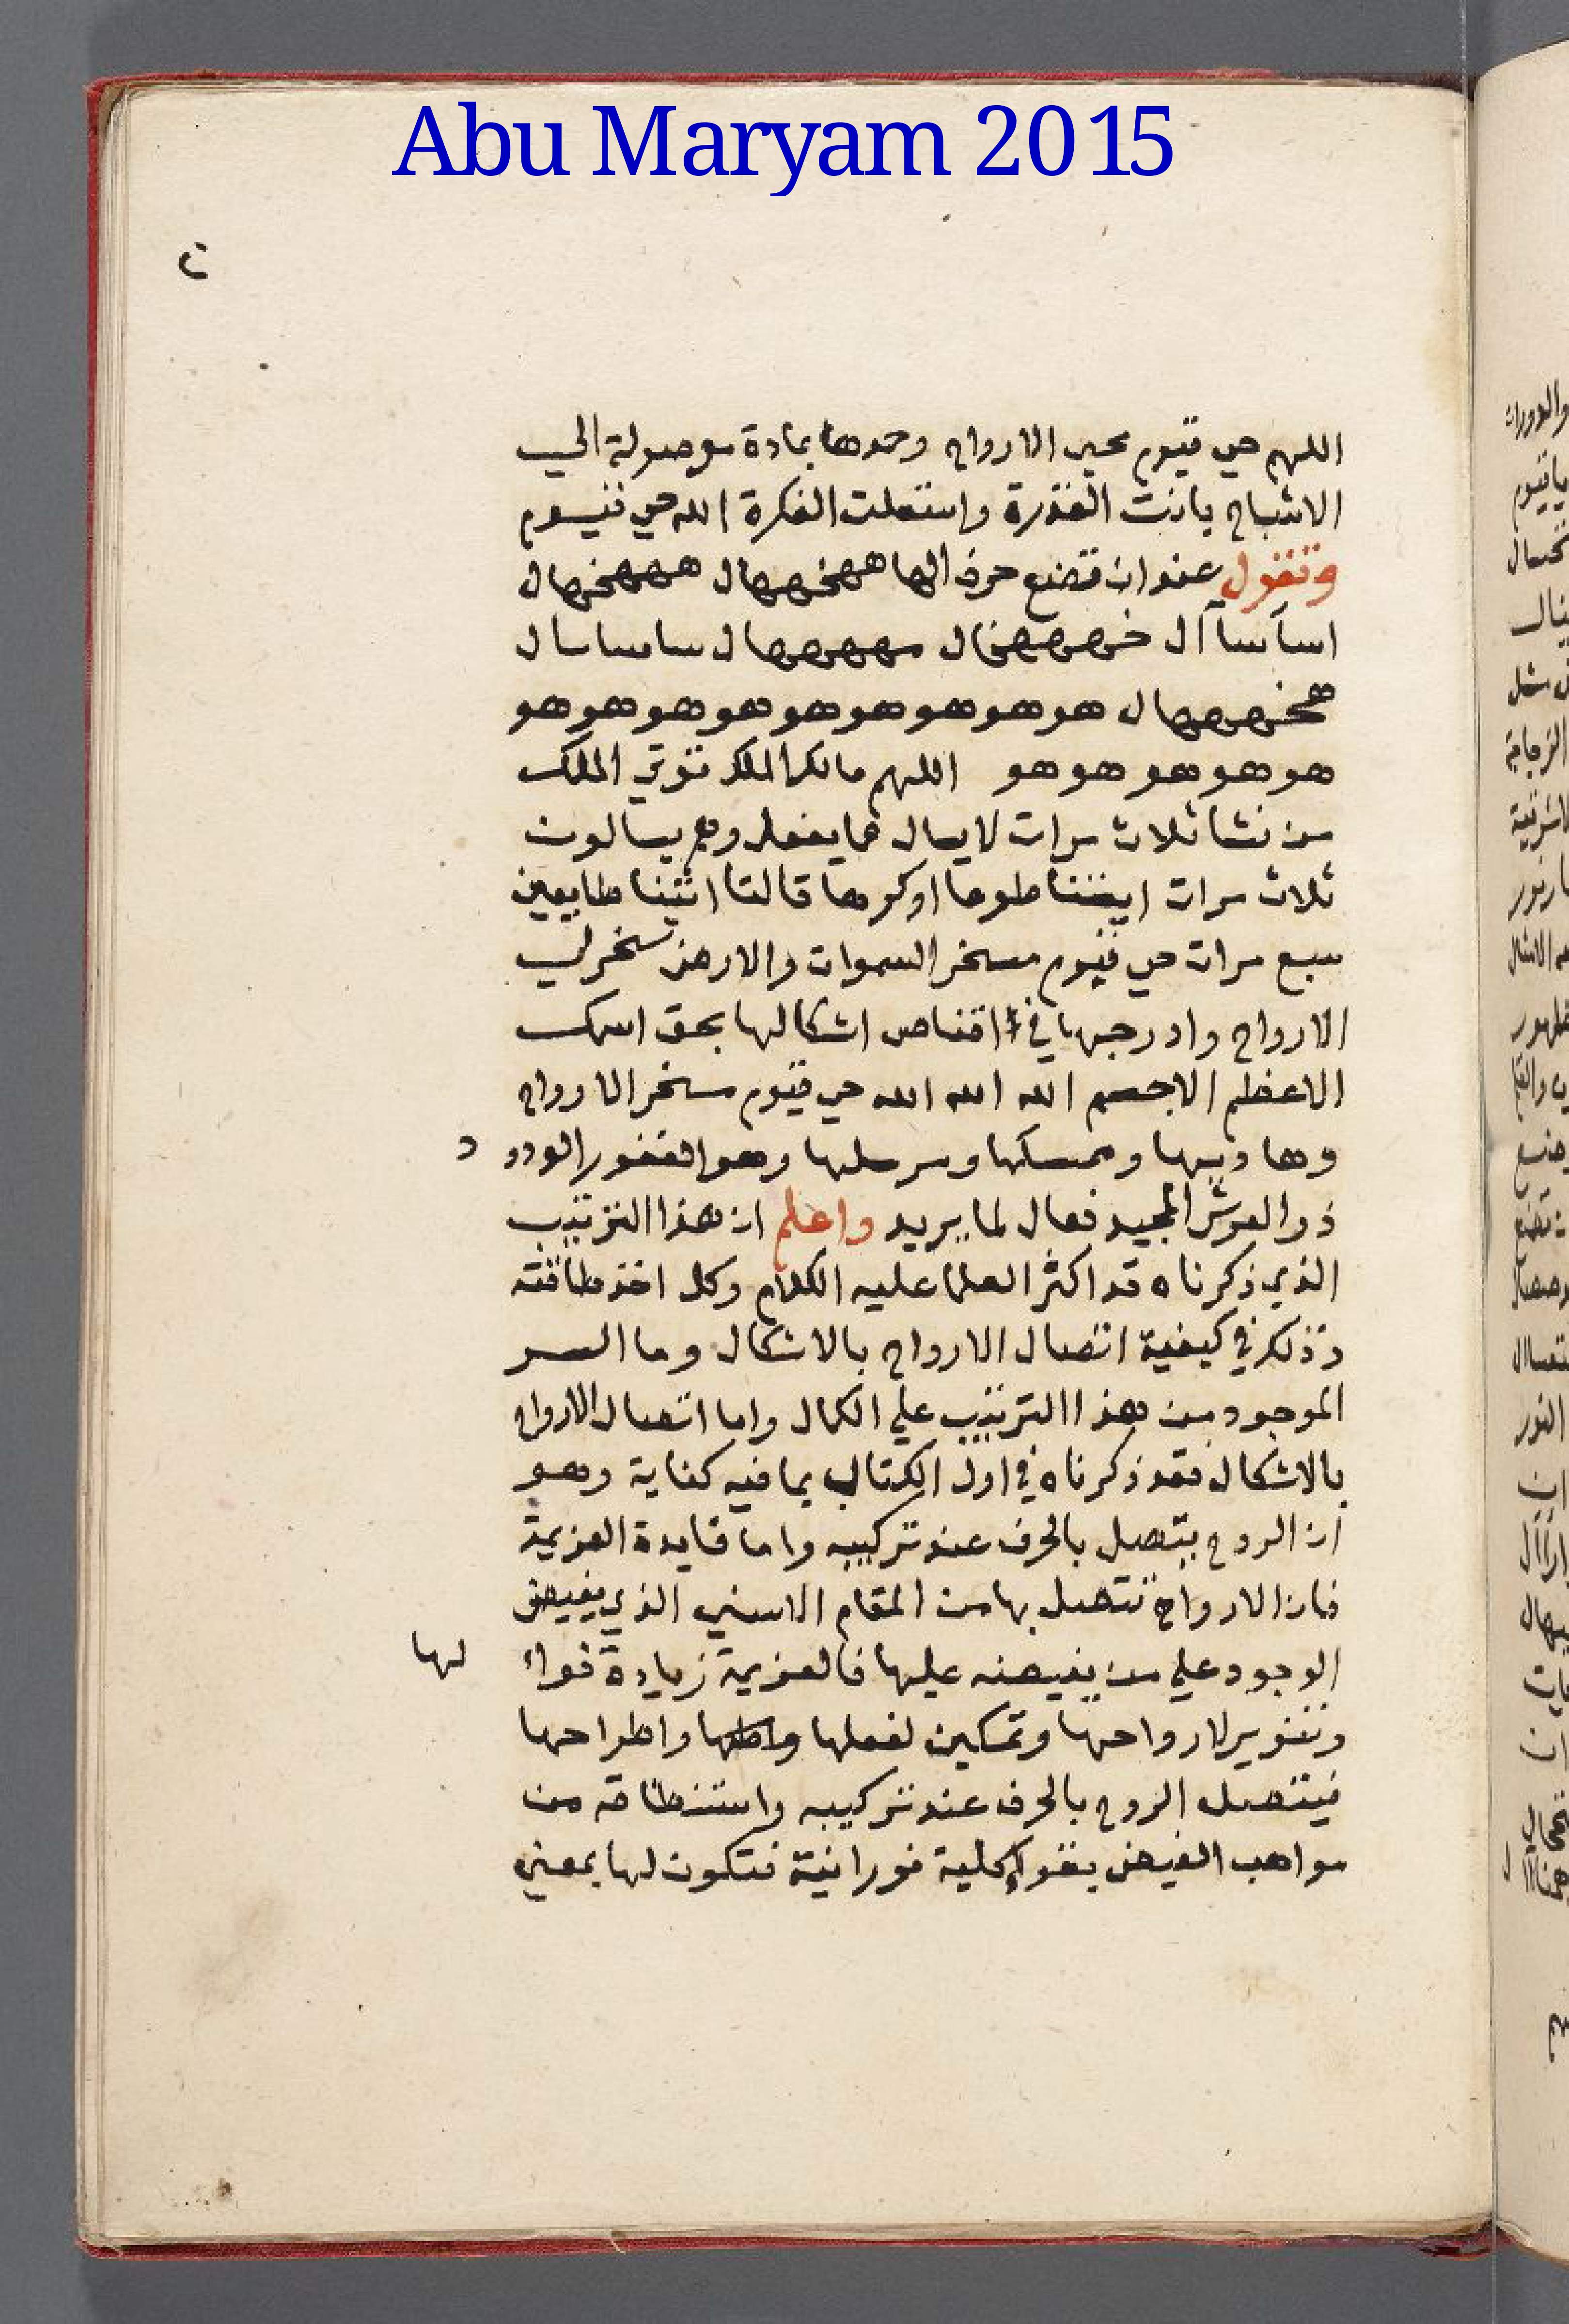 Abu Maryam 2015
اللهم حي قيوم محيي الارواح وممدها بمادة موصولة الي
الاشباح بانت القدرة وانتقلت الفكرة الله حي قيوم
وتقول عند ان تضع حرف الها
هو هو هو هو هو هو هو هو
هو هو هو هو هو اللهم مالك الملك توتي الملك
من تشا ثلاث مرات لا يسال عما يفعل وهم يسالون
ثلاث مرات ايتنا طوعا او كرها قالتا اتينا طايعين
سبع مرات حي قيوم مسخر السموات والارض سخر لي
الارواح وادرجها في اقناص اشكالها بحق اسمك
الاعظم الله الله الله حي قيوم مسخر الارواح
وهاديها وممسكها ومرسلها وهو الغفور الودود
ذو العرش المجيد فعال لما يريد واعلم ان هذا الترتيب
الذي ذكرناه قد اكثر العلما عليه الكلام وكل اخذ طاقته
وذلك في كيفية اتصال الارواح بالاشكال وما السر
الموجود من هذا الترتيب علي الكمال واما اتصال الارواح
بالاشكال فقد ذكرناه في اول الكتاب بما فيه كفاية وهو
ان الروح يتصل بالحرف عند تركيبه واما فايدة العزيمة
فان الارواح تتصل بها من المقام الاسني الذي يفيض
الوجود علي من يفيضه عليها فالعزيمة زيادة قواء لها
وتنوير لارواحها وتمكين لفعلها واطراحها
فيتصل الروح بالحرف عند تركيبه واستنطاقه من
مواهب الفيض كلية نورانية فتكون لها بمعني